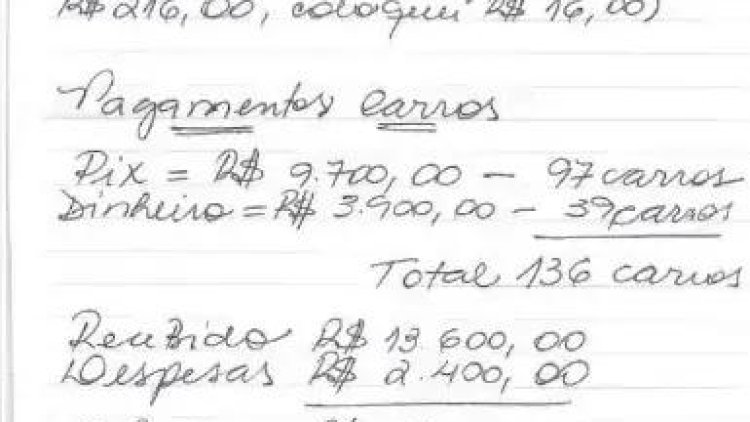 R$ 216,00, coloquei R$ 16,00)
Pagamentos Carros
Pix = R$ 9.700,00 - 97 carros
Dinheiro = R$ 3.900,00 - 39 carros
Total 136 carros
Recebido R$ 13.600,00
Despesas R$ 2.400,00